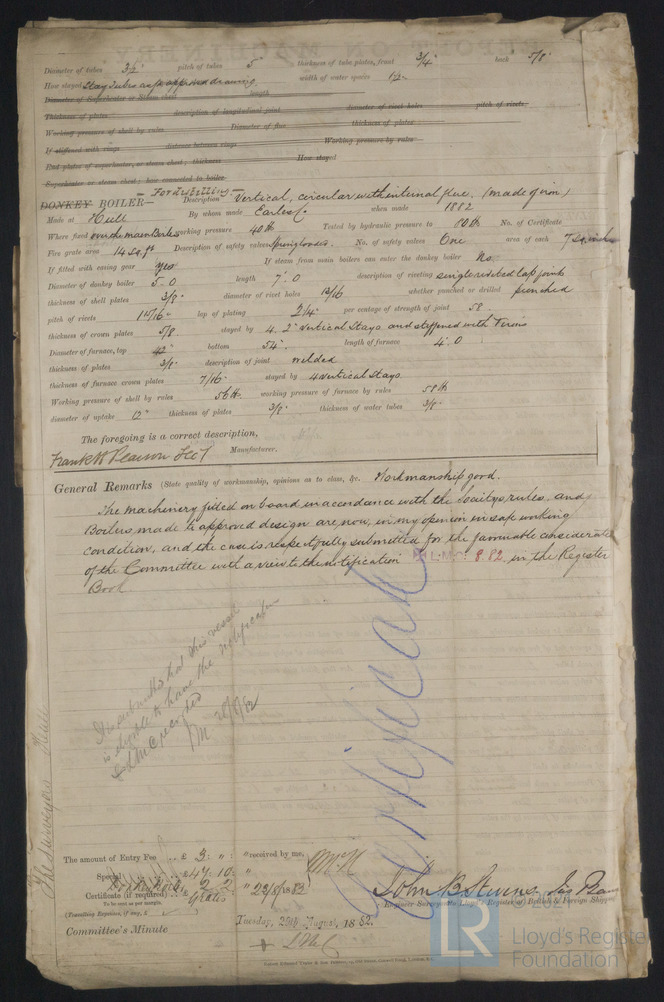 Diameter of tubes 3½" pitch of tubes 5" thickness of tube plates, front 3/4" back 5/8"
How stayed Stay tubes as per approved drawing width of water spaces
Diameter of Superheater or Steam chest length
Thickness of plates description of longitudinal joint diameter of rivet holes pitch of rivets
Working pressure of shell by rules Diameter of flue thickness of plates
If stiffened with rings distance between rings Working pressure by rules
End plates of superheater, or steam chest; thickness How stayed
Superheater or steam chest; how connected to boiler
DONKEY BOILER— Description Vertical, circular with internal flue. (made of iron)
Made at Hull By whom made Earles Co when made 1882
Where fixed over the main Boiler working pressure 40 lb Tested by hydraulic pressure to 80 lb No. of Certificate
Fire grate area 14 sq. ft Description of safety valves Spring loaded No. of safety valves One area of each 7 sq. inches
If fitted with easing gear Yes If steam from main boilers can enter the donkey boiler No.
Diameter of donkey boiler 5-0 length 7'.0 description of riveting single riveted lap joint
thickness of shell plates 3/8" diameter of rivet holes 13/16 whether punched or drilled punched
pitch of rivets 1 15/16" lap of plating 2¼" per centage of strength of joint 58
thickness of crown plates 5/8 stayed by 4. 2" Vertical Stays and stiffened with
Diameter of furnace, top 42" bottom 54". length of furnace 4'.0
thickness of plates 3/8" description of joint welded
thickness of furnace crown plates 7/16" stayed by 4 vertical stays
Working pressure of shell by rules 56 lb working pressure of furnace by rules 58 lb
diameter of uptake 12" thickness of plates 3/8" thickness of water tubes 3/8"
The foregoing is a correct description,
Frank H Pearson Manufacturer.
General Remarks (State quality of workmanship, opinions as to class, &c. Workmanship good.
The machinery fitted on board in accordance with the Societys rules, and
Boilers made to approved design are now, in my opinion in safe working
condition, and the case is respectfully submitted for the favourable consideration
of the Committee with a view to the notification L.M.C. 8.82 in the Register
Book
It is submitted that this vessel
is eligible to have the notification
LMC recorded
28/8/82
Certificate
The Surveyors Hull
The amount of Entry Fee .. £ 3 : " : " received by me,
Special .. £ 47 : 10 :
Donkey Boiler 2 . 2
Certificate (if required) gratis " 22/8/1882
To be sent as per margin.
(Travelling Expenses, if any, £
John B Stevens
Engineer Surveyor to Lloyd's Register of British & Foreign Shipping
Committee's Minute Tuesday, 29th August, 1882.
+ LMC
© 2021
LR
Lloyd's Register
Foundation